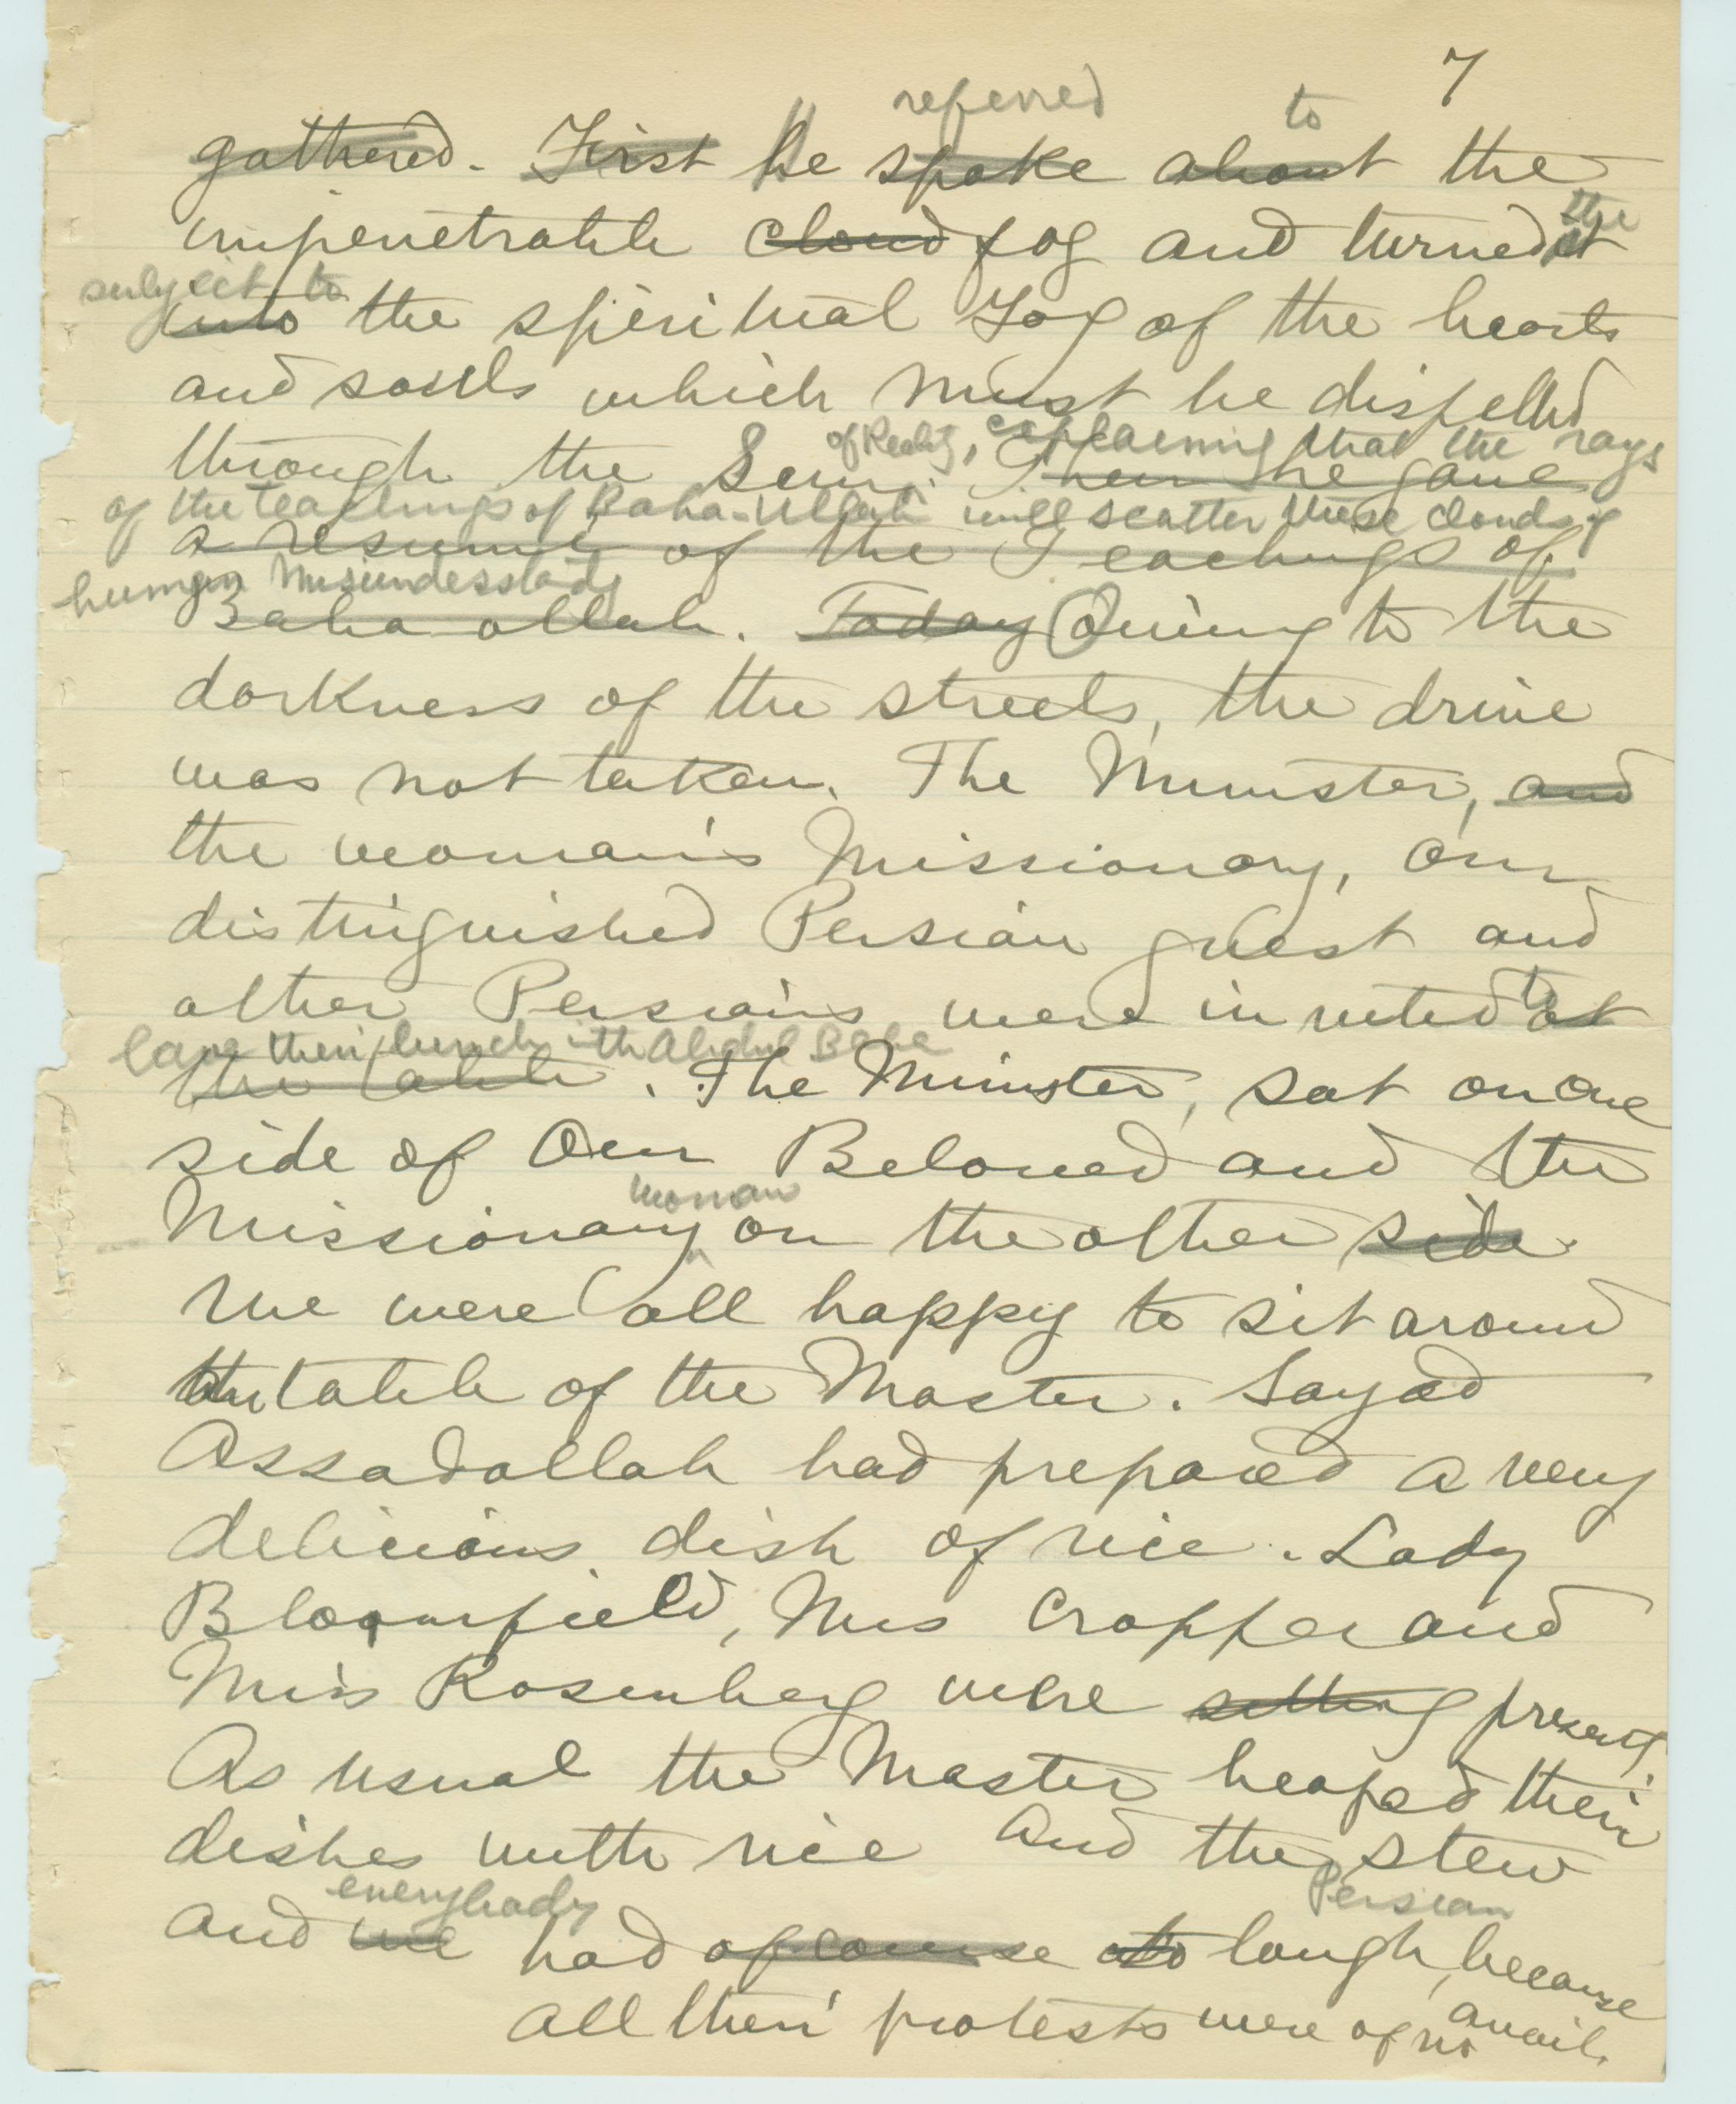 7
referred to
gathered. First he spoke about the
the
impenetrable cloud fog and turned it
subject to
into the spiritual Fog of the hearts
and souls which must be dispelled
of Reality, explaining that the rays
through the Sun. Then he gave
of the teachings of Baha-Ullah will scatter these clouds of
a resume of the Teachings of
human misunderstandg
Baha ollah. Today Owing to the
darkness of the streets, the drive
was not taken. The Minister, and
the woman's Missionary, our
distinguished Persian guest and
to
other Persians were invited at
have their lunch with Abdul Baha
the table. The Minister, sat on one
side of Our Beloved and the
woman
Missionary on the other side.
We were all happy to sit around
the table of the Master. Sayad
Assadollah had prepared a very
delicious dish of rice. Lady
Bloomfield, Mrs Cropper and
Miss Rosenberg were sitting present.
As usual the Master heaped their
dishes with rice and the stew
everybody Persian
and we had of course to laugh, because
all their protests were of no avail.